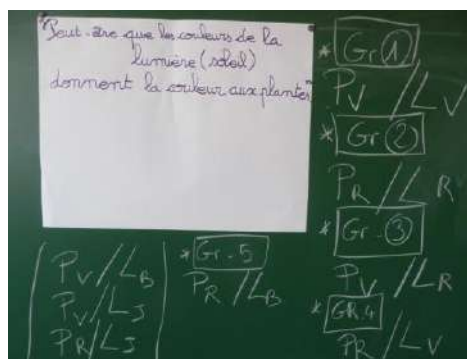 "Peut-être que les couleurs de la
lumière (soleil)
donnent la couleur aux plantes"
* Gr ①
PV / LV
* Gr ②
PR / LR
* Gr - ③
PV / LR
* GR.4
PR / LV
* Gr - 5
PR / LB
PV / LB
PV / LJ
PR / LJ